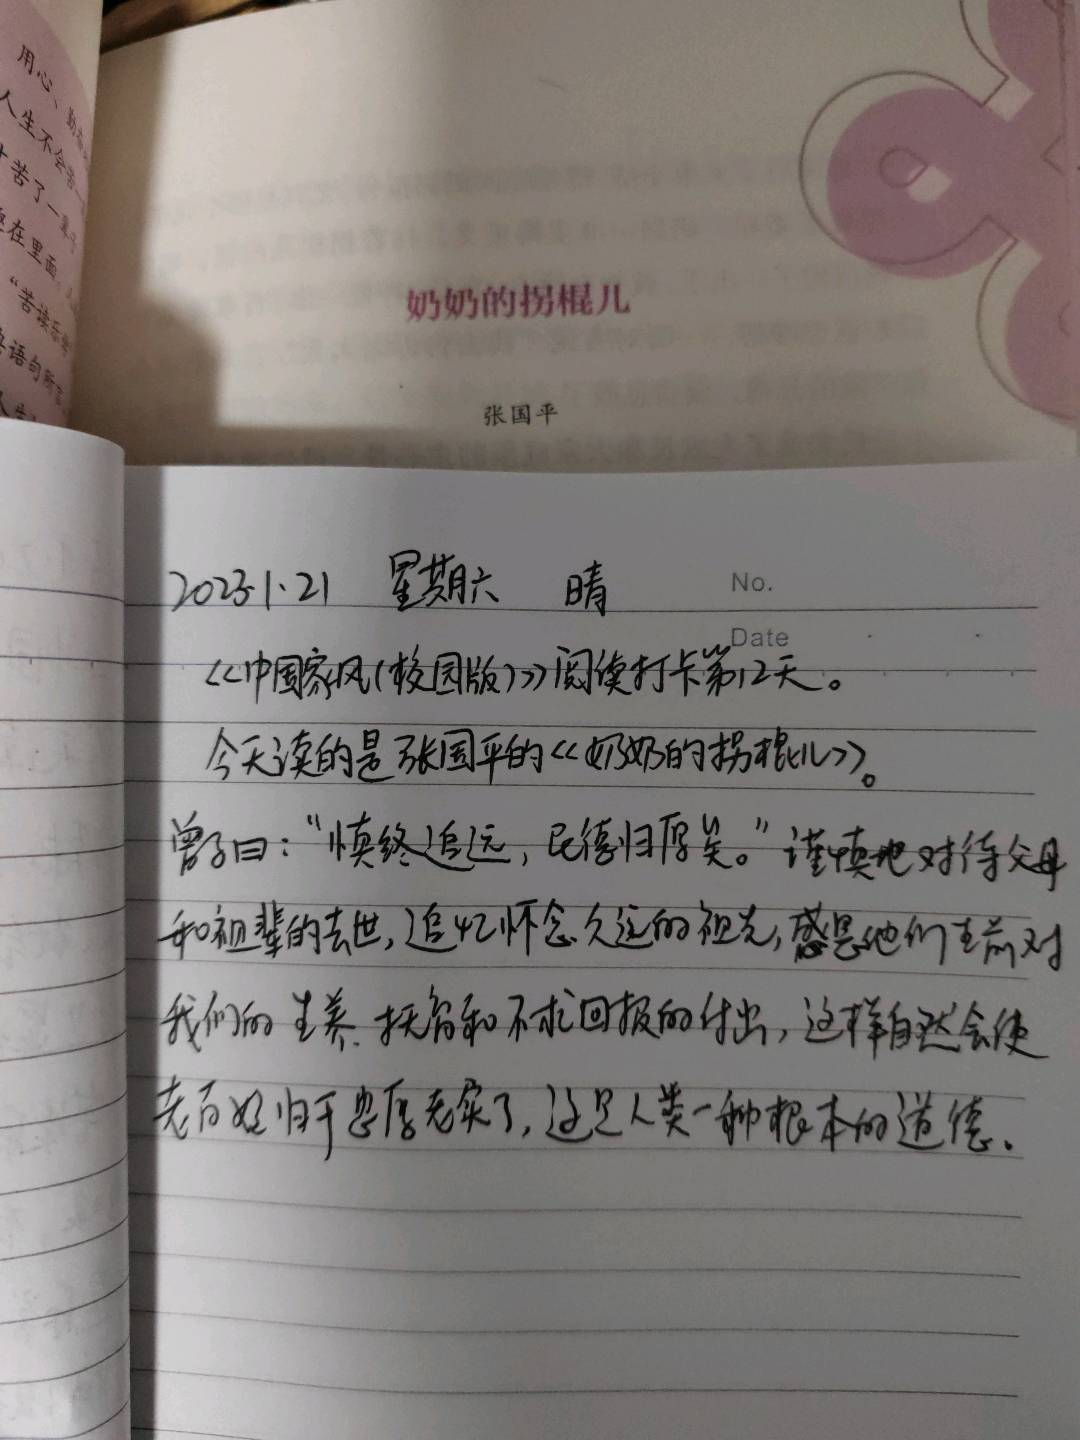 用心、勤奋
人生不会苦一
苦了一辈子
在里面。
“苦读乐
语句所
奶奶的拐棍儿
张国平
No.
Date
2023·1·21 星期六 晴
《中国家风(校园版)》阅读打卡第12天。
今天读的是张国平的《奶奶的拐棍儿》。
曾子曰：“慎终追远，民德归厚矣。”谨慎地对待父母
和祖辈的去世，追忆怀念久远的祖先，感恩他们生前对
我们的生养、抚育和不求回报的付出，这样自然会使
老百姓归于忠厚老实了，这是人类一种根本的道德。